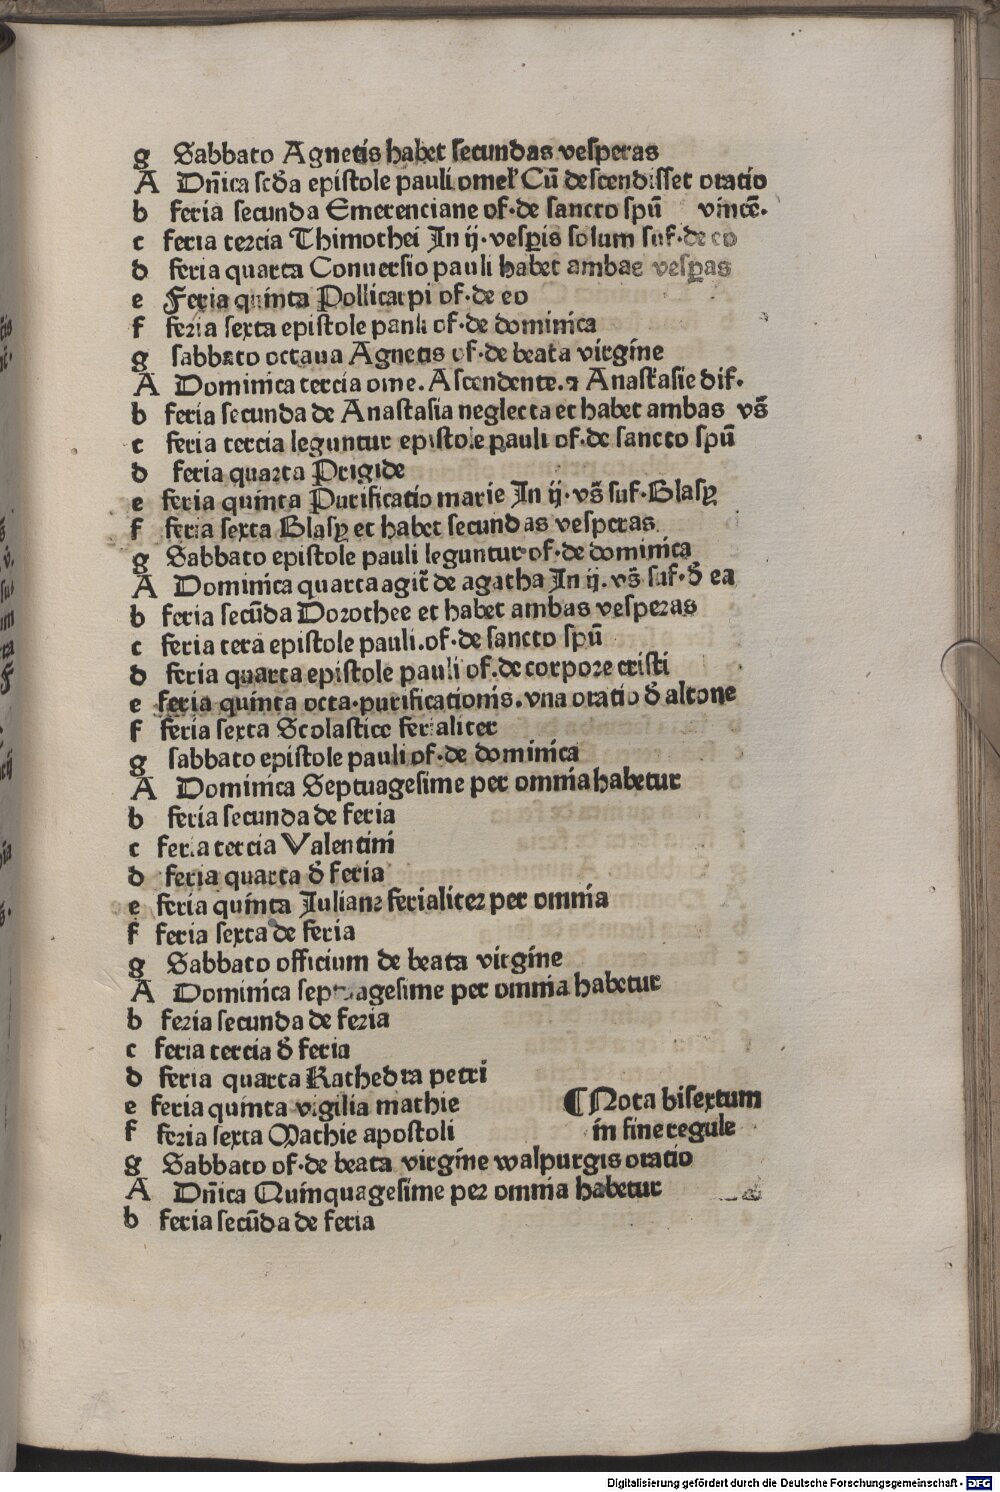 g Sabbato Agnetis habet secundas vesperas
A Dn̄ica scd̄a epistole pauli omeł Cū descendisset oratio
b feria secunda Emerenciane of·de sancto spū vincē·
c feria tercia Thimothei In ij·vesꝑis solum suf·de eo
d feria quarta Conuersio pauli habet ambae vesꝑas
e Feria quinta Pollicarpi of·de eo
f feria sexta epistole pauli of·de dominica
g sabbato octaua Agnetis of·de beata virgine
A Dominica tercia ome.Ascendente.⁊ Anastasie dif·
b feria secunda de Anastasia neglecta et habet ambas vs̄
c feria tercia leguntur epistole pauli of·de sancto spū
d feria quarta Prigide
e feria quinta Purificatio marie In ij·vs̄ suf·Blasꝭ
f feria sexta Blasꝭ et habet secundas vesperas
g Sabbato epistole pauli leguntur of·de dominica
A Dominica quarta agit̄ de agatha In ij·vs̄ suf·d̄ ea
b feria secūda Dorothee et habet ambas vesperas
c feria tera epistole pauli.of·de sancto spū
d feria quarta epistole pauli of.de corpore cristi
e feria quinta octa·purificationis.vna oratio d̄ altone
f feria sexta Scolastice ferialiter
g sabbato epistole pauli of·de dominica
A Dominica Septuagesime per omnia habetur
b feria secunda de feria
c feria tercia Valentini
d feria quarta d̄ feria
e feria quinta Juliane ferialiter per omnia
f feria sexta de feria
g Sabbato officium de beata virgine
A Dominica septuagesime per omnia habetur
b feria secunda de feria
c feria tercia d̄ feria
d feria quarta Kathedra petri
e feria quinta vigilia mathie ¶Nota bisextum
f feria sexta Mathie apostoli in fine regule
g Sabbato of·de beata virgine walpurgis oratio
A Dn̄ica Quinquagesime per omnia habetur
b feria secūda de feria
Digitalisierung gefördert durch die Deutsche Forschungsgemeinschaft - DFG